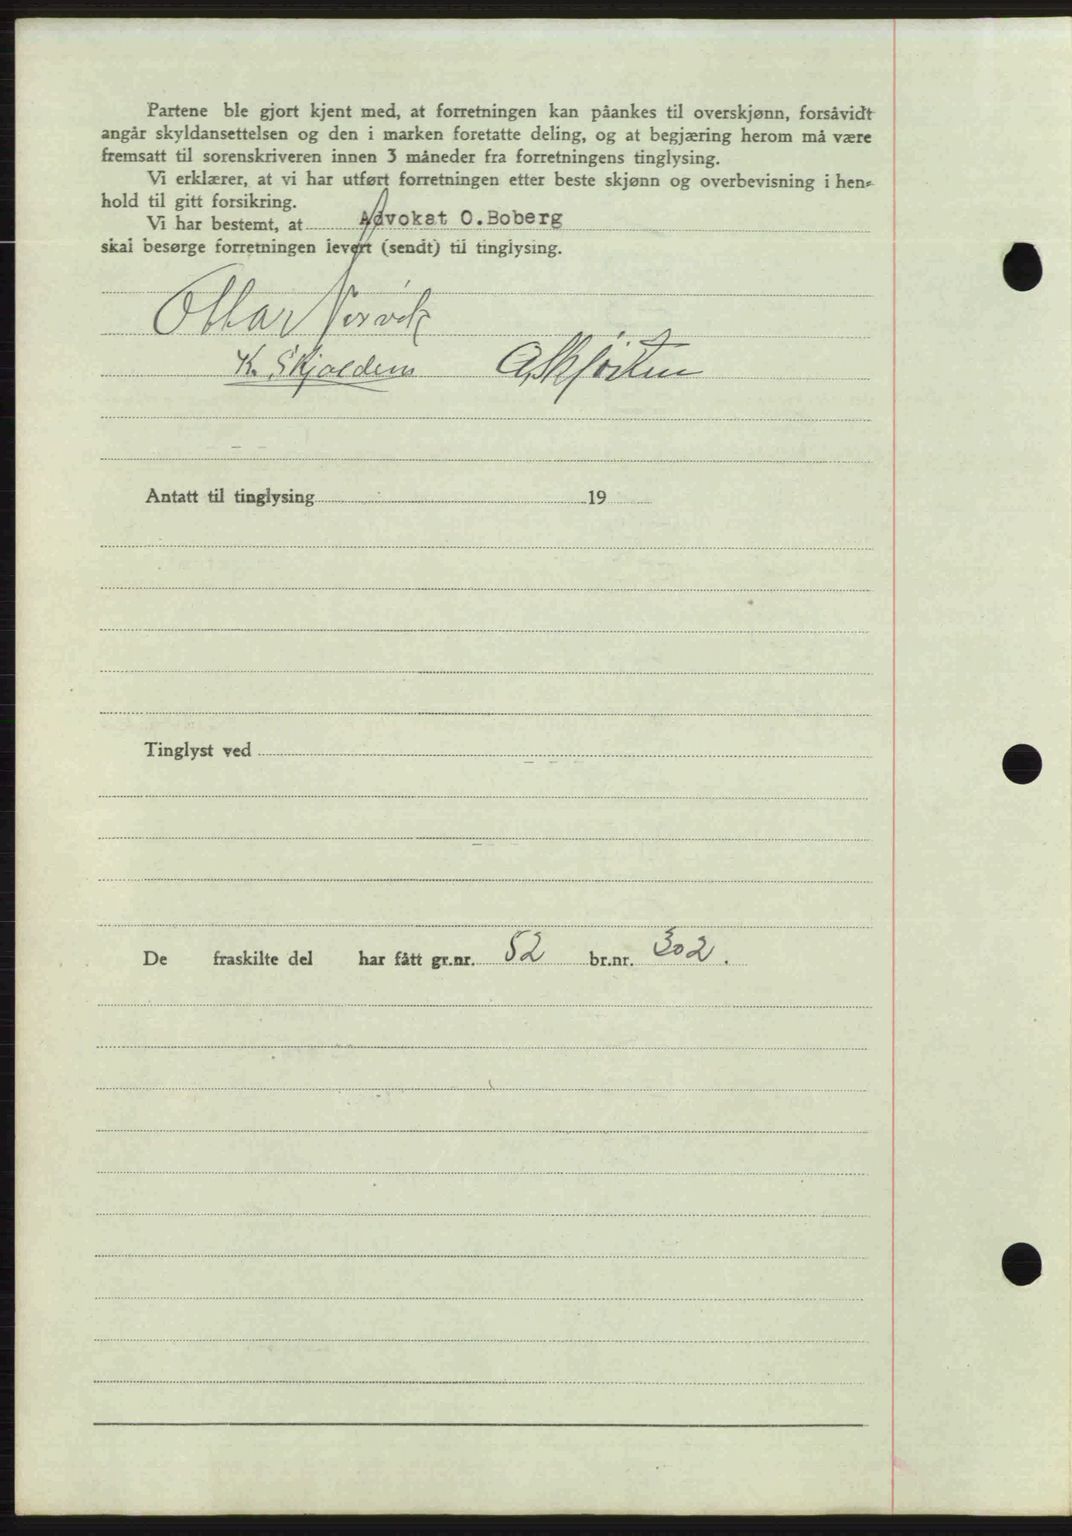 Partene ble gjort kjent med, at forretningen kan påankes til overskjønn, forsåvidt
angår skyldansettelsen og den i marken foretatte deling, og at begjæring herom må være
fremsatt til sorenskriveren innen 3 måneder fra forretningens tinglysing.
Vi erklærer, at vi har utført forretningen etter beste skjønn og overbevisning i hen-
hold til gitt forsikring.
Vi har bestemt, at Advokat O.Boberg
skal besørge forretningen levert (sendt) til tinglysing.
Ottar
K. Skjoldem
Antatt til tinglysing 19
Tinglyst ved
De fraskilte del har fått gr.nr. 52 br.nr. 302.